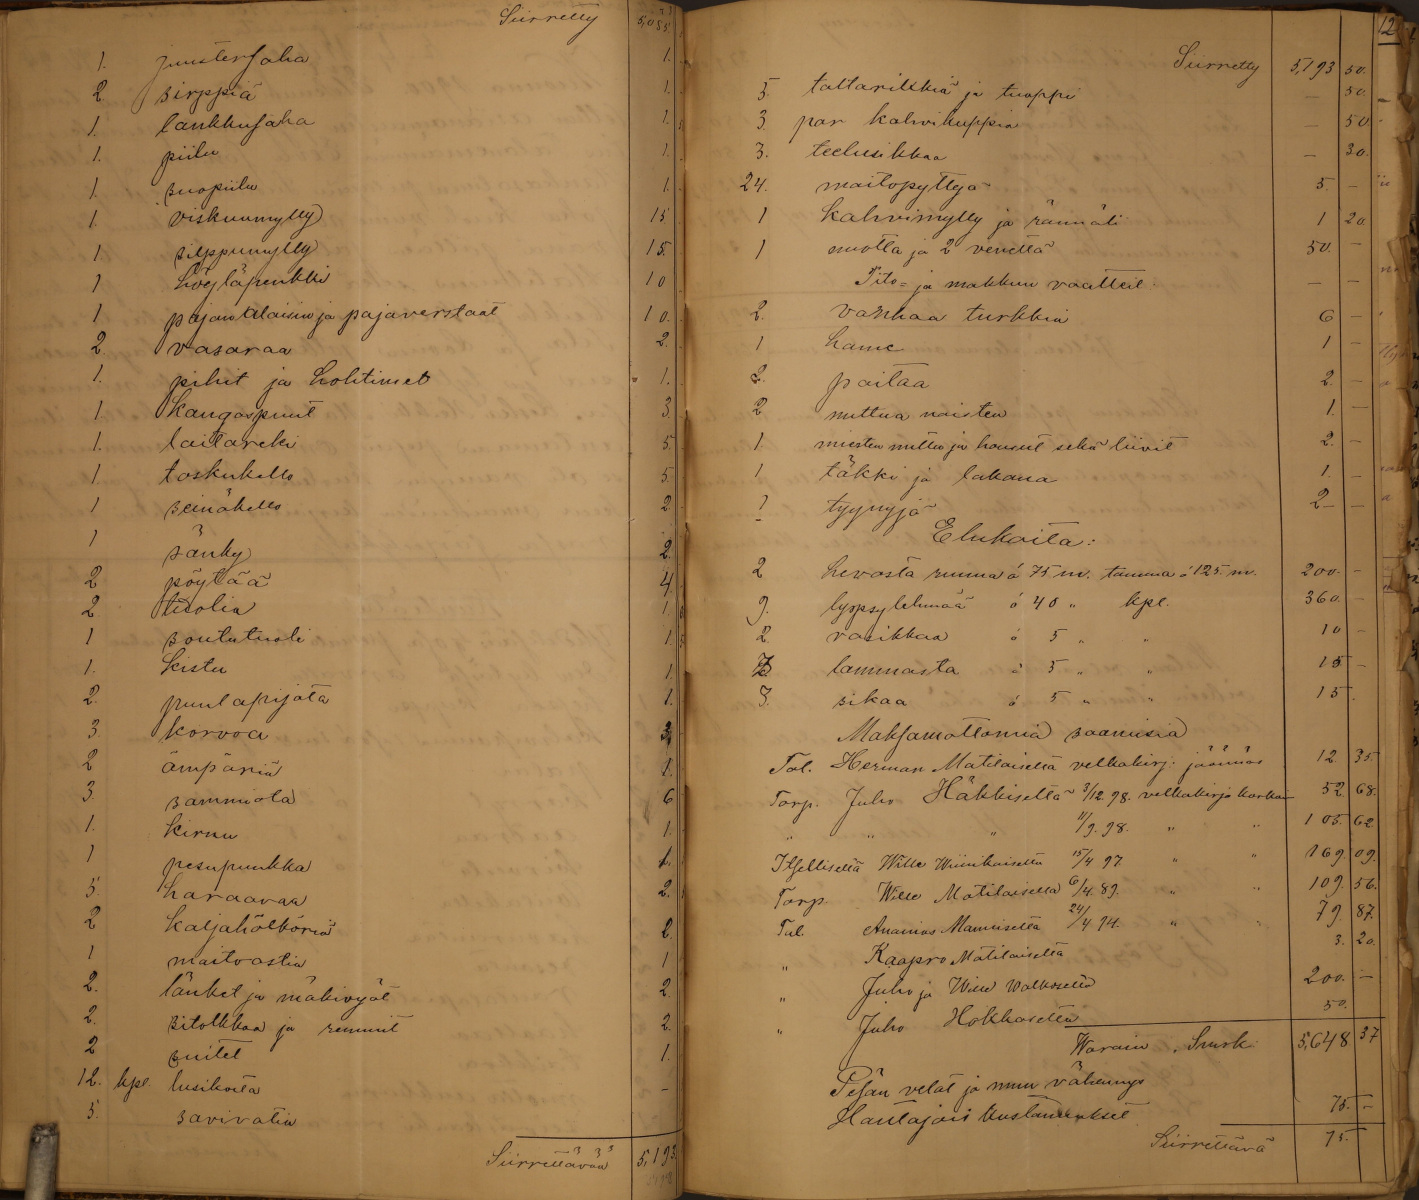 Siirretty 5,055
1. juustersaha 1.
2. sirppiä 1.
1. lankkusaha 1.
1. piilu 1.
1. suopiilu 1.
1. viskuumylly 15
1 silppumylly 15.
1 höyläpenkki 10
1 pajan alaisin ja pajaverstaat 10.
2 vasaraa 2.
1. pihit ja hohtimet 1.
1. Kangaspuut 3.
1. laitareki 5.
1. taskukello 5.
1 seinäkello 2
1 sänky 2.
2 pöytää 4.
2. tuolia 1.
1 soututuoli 1.
1. Kistu 1.
2. puulapijota 1.
3. Korvoa 3.
2 ämpäriä 1.
3. sammiota 6
1. Kirnu 1.
1 pesupunkka 1.
5. haraavaa 2.
2 Kaljahölköriä 2.
1 maitoastia 1
2. länket ja mäkivyöt 2.
2. sitolkkaa ja remmit 2.
2 suitet 1.
12. kpl. lusikoita —
5. savivatia
Siirrettävää 5,193.
12
Siirretty 5,193 50.
5. taltarikkiä ja tuoppi — 50.
3. par kahvikuppia — 50
3. teelusikkaa — 30.
24. maitopyttyä 5 —
1 Kahvimylly ja rännäli 1 20.
1 nuotta ja 2 venettä 50. —
Pito= ja makkuu vaatteet — —
2. vanhaa turkkia 6 —
1 hame 1 —
2. paitaa 2. —
2 nuttua naisten 1. —
1. miesten nuttu ja housut sekä liivit 2. —
1 täkki ja lakana 1. —
1 tyynyjä 2 —
Elukoita:
2 hevosta ruuna á 75 m. tamma á 125 m. 200. —
9. lypsylehmää á 40 " kpl. 360. —
2. vasikkaa á 5 " " 10 —
3 lammasta á 5 " " 15 —
3. sikaa á 5 " " 15.
Maksamattomia saamisia
Tal. Herman Matilaiselta velkakirj. jäännös 12 35.
Torp. Juho Häkkiseltä 3/12.98. velkakirja korko 52 68.
" " " 11/9.98. " " 105. 62
Itselliseltä Wille Wiinikaiselta 15/4 97 " " 169. 09.
Torp. Wille Matilaiselta 6/4.89. " " 109. 56.
Tal. Ananias Manniselta 24/4 94. " " 79. 87.
" Kaapro Matilaiselta 3. 20.
" Juho ja Wille Walkoselta 200. —
" Juho Hokkaselta 50.
Warain Smrk. 5,648 37
Pesän velat ja muu vähennys
Hautajais kustannukset 75. —
Siirrettävä 75.